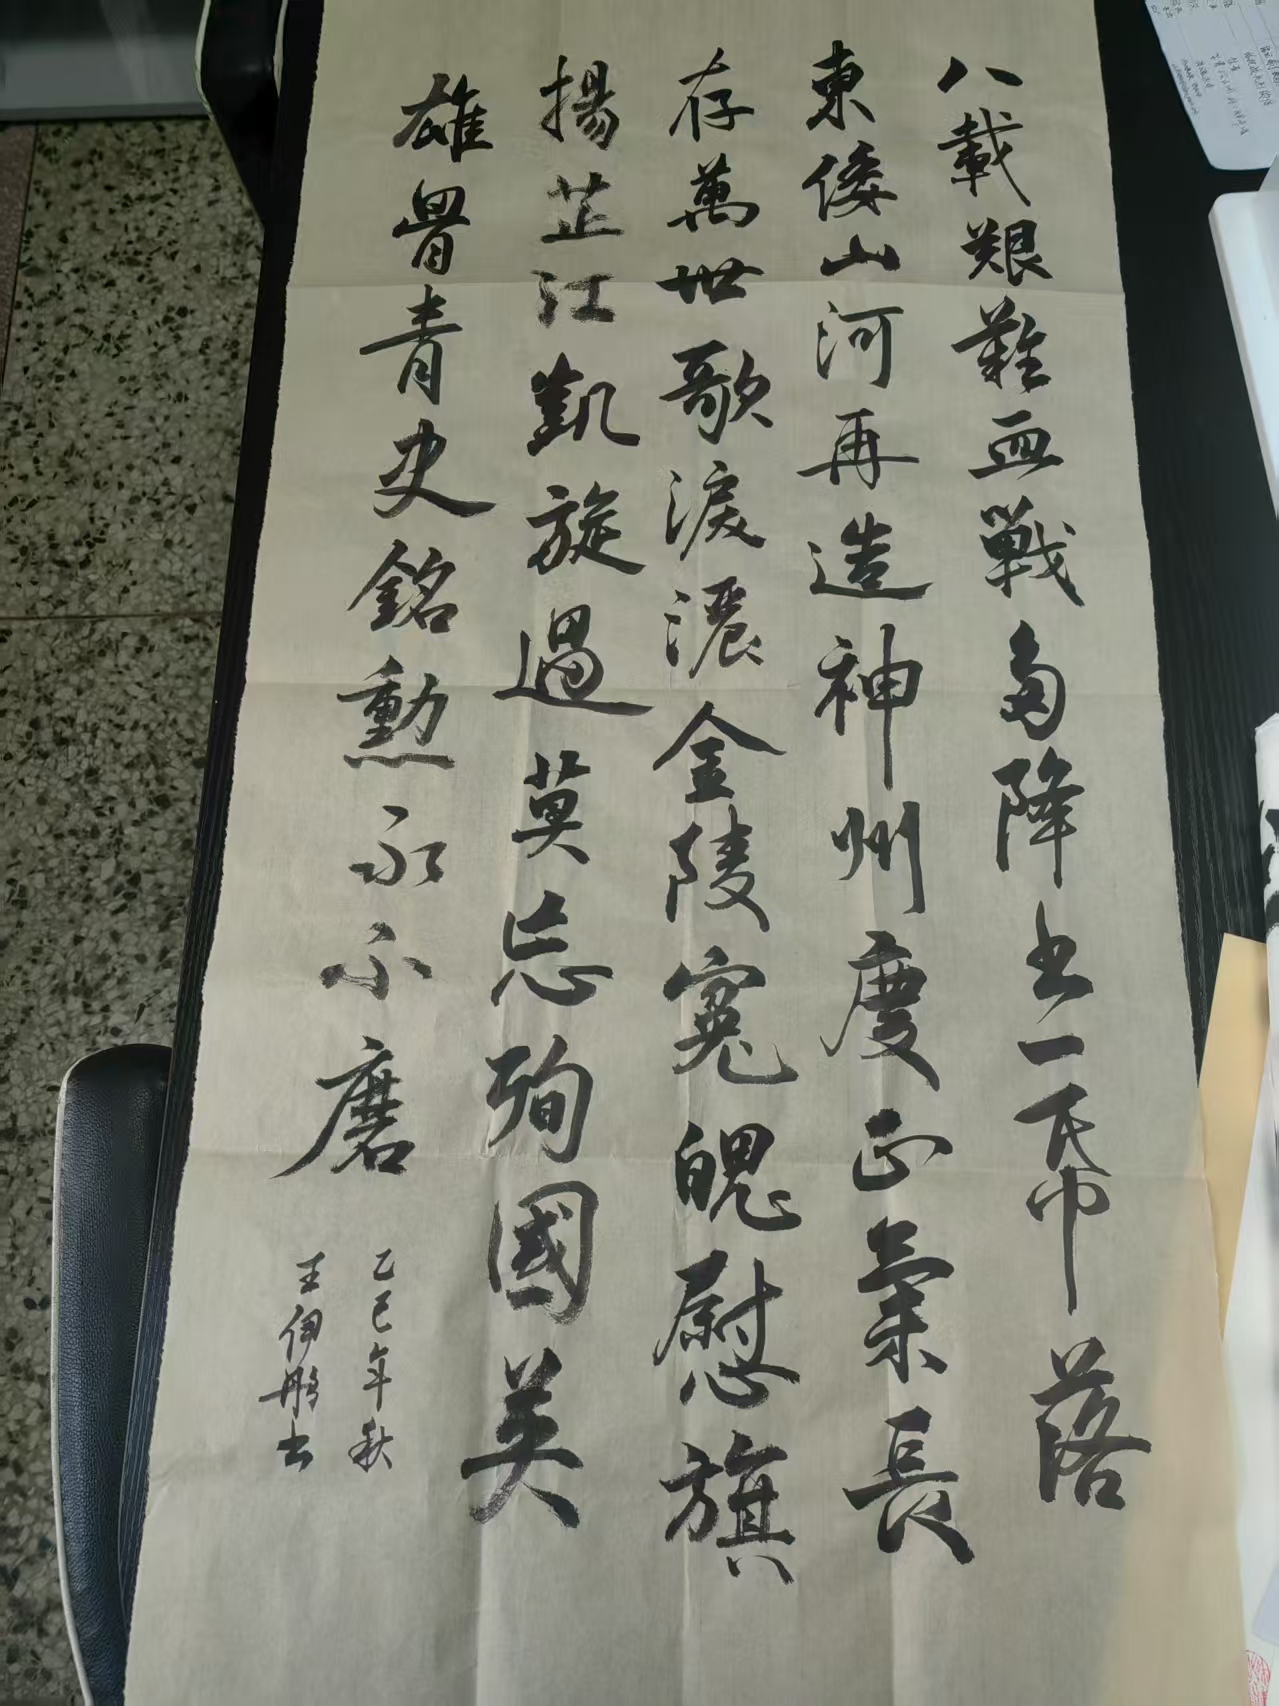 八載艱難血戰多降书一帋落
東倭山河再造神州慶正氣長
存萬世歌淚灑金陵寃魄慰旗
揚芷江凱旋過莫忘殉國英
雄骨青史銘勳永不磨
乙巳年秋
王伊书